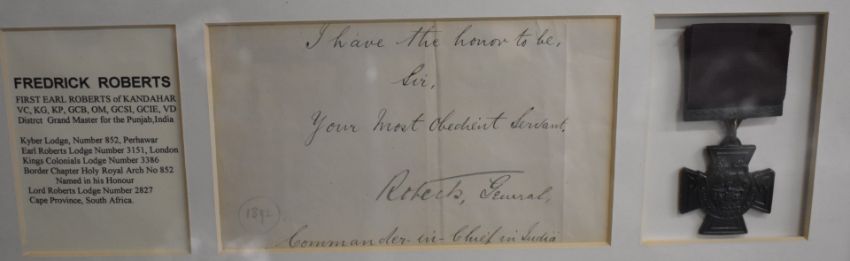 FREDRICK ROBERTS
FIRST EARL ROBERTS of KANDAHAR
VC, KG, KP, GCB, OM, GCSI, GCIE, VD
Distrct Grand Master for the Punjab,India
Kyber Lodge, Number 852, Perhawar
Earl Roberts Lodge Number 3151, London
Kings Colonials Lodge Number 3386
Border Chapter Holy Royal Arch No 852
Named in his Honour
Lord Roberts Lodge Number 2827
Cape Province, South Africa.
I have the honor to be,
Sir,
Your Most Obedient Servant,
Roberts, General,
1892
Commander-in-Chief in India